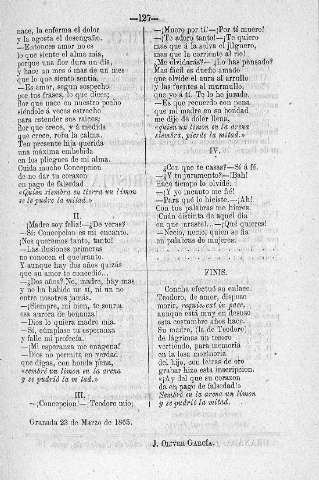 —127—
nace, la enferma el dolor
y la agosta el desengaño.
—Entonces amor no es
lo que siente el alma mia,
porque una flor dura un dia,
y hace un mes ó mas de un mes
que lo que siento sentia.
—Es amor, segun sospecho
por tus frases, lo que dices;
flor que nace en nuestro pecho
siéndole á veces estrecho
para estender sus raices;
flor que crece, y á medida
que crece, roba la calma.
Ten presente hija querida
una máxima embebida
en los pliegues de mi alma.
Cuida mucho Concepcion
de no dar tu corazon
en pago de falsedad
«Quien siembra en tierra un limon
se le pudre la mitad.»
II.
¡Madre soy feliz!—¿De veras?
—Sí: Concepcion es mi encanto.
¡Nos queremos tanto, tanto!
—Las ilusiones primeras
no conocen el quebranto.
Y aunque hay dos años quizás
que su amor te concedió...
—¿Dos años? No, madre, hay mas
y no ha habido un sí, ni un no
entre nosotros jamás.
—¡Siempre, mi bien, te sonria
esa aurora de bonanza!
—Dios lo quiera madre mia.
—Sí, cúmplase tu esperanza
y falle mi profecía.
—¡Mi esperanza me enagena!
—Dios no permita en verdad
que digas, con honda pena,
«sembré un limon en la arena
y se pudrió la mitad.»
III.
—¡Concepcion!— Teodoro mio;
—¡Muero por tí!—¡Por tí muero!
—¡Te adoro tanto!—¡Te quiero
mas que á la selva el jilguero,
mas que la corriente al rio!
¿Me olvidarás?— ¿Lo has pensado?
Mas fácil es dueño amado
que olvide el aura al arrullo
y las fuentes al murmullo,
que yo á tí. Te lo he jurado.
—Es que recuerdo con pena
que mi madre en su bondad
me dijo de dolor llena,
«quien un limon en la arena
siembra, pierde la mitad.»
IV.
¿Con que te casas?—Sí á fé.
—¿Y tu juramento?—¡Bah!
Hace tiempo lo olvidé.
—¡Y yo menuto me hé!
—Para qué lo hiciste.—¡Ah!
Con tus palabras me hieres.
Cuán distinta de aquel dia
en que amaste!...—¡Qué quieres!
—Necio, necio, quien se fia
en palabras de mujeres.
FINIS.
Concha efectuó su enlace.
Teodoro, de amor, dispuso
morir, requiescat in pace,
aunque está muy en desuso
esta costumbre años hace.
Su madre, (la de Teodoro)
de lágrimas un tesoro
vertiendo, para memoria
en la losa mortuoria
del hijo, con letras de oro
grabar hizo esta inscripcion.
«¡Ay del que su corazon
da en pago de falsedad!»
Sembró en la arena un limon
y se pudrió la mitad.
Granada 23 de Marzo de 1865.
J. Oliver García.